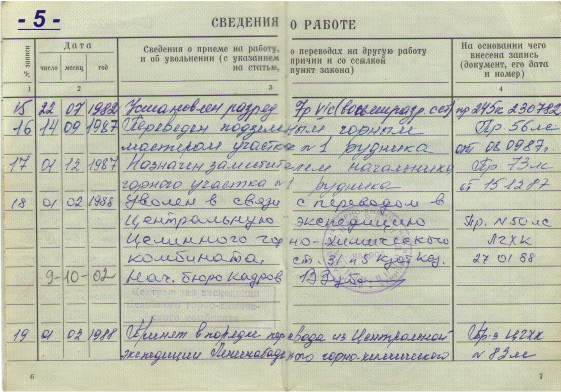 - 5 -
СВЕДЕНИЯ О РАБОТЕ
№ записи
Дата
число месяц год
Сведения о приеме на работу, о переводах на другую работу
и об увольнении (с указанием причин и со ссылкой
на статью, пункт закона)
На основании чего
внесена запись
(документ, его дата
и номер)
1 2 3 4
15 22 07 1982 Установлен разряд гр пр 245к 230782
16 14 09 1987 Переведен подземным горным Пр 56лс
мастером участка №1 рудника от 1987г.
17 01 12 1987 Назначен заместителем начальника Пр 73лс
горного участка №1 рудника от 15.12.87
18 01 02 1988 Уволен в связи с переводом в
Центральную экспедицию Пр. №50лс
Целинного горно-химического ЛГХК
комбината, ст. 31 п5 Кзот Каз. 27 01 88
9-10-02 Нач. бюро кадров
19 01 02 1988 Принят в порядке перевода из Центральной Пр-з ЦГХК
экспедиции Ленинабадского горно-химического №83лс
6 7